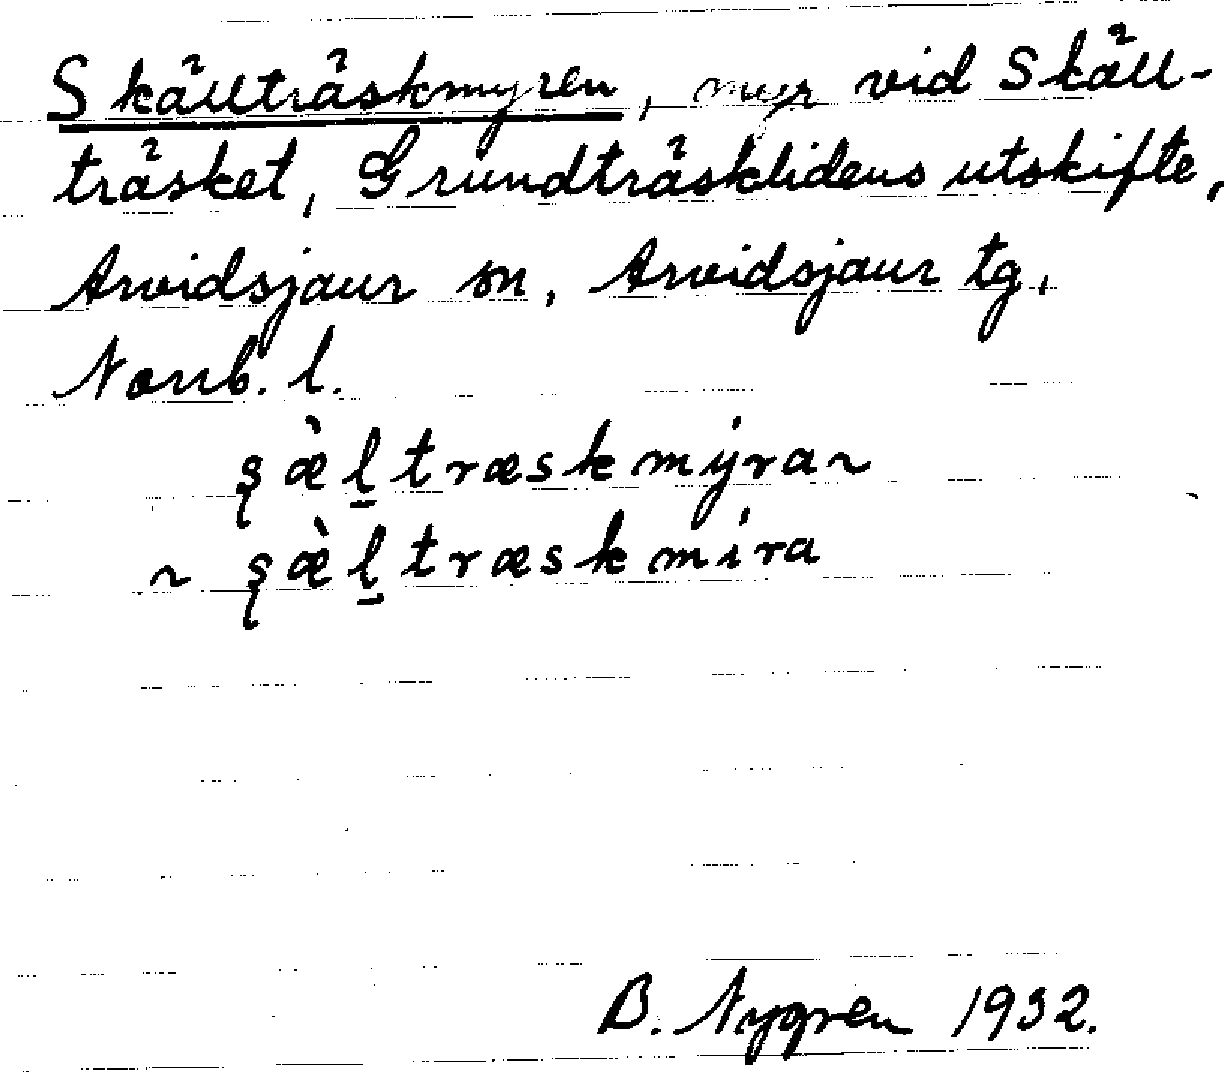 Skällträskmyren, myr vid Skäll-
träsket, Grundträsklidens utskifte,
Arvidsjaur sn, Arvidsjaur tg,
Norrb. l.
ʂæ̀l̲træskmýra ~
~ ʂæ̀l̲træskmíra
B. Nygren 1932.